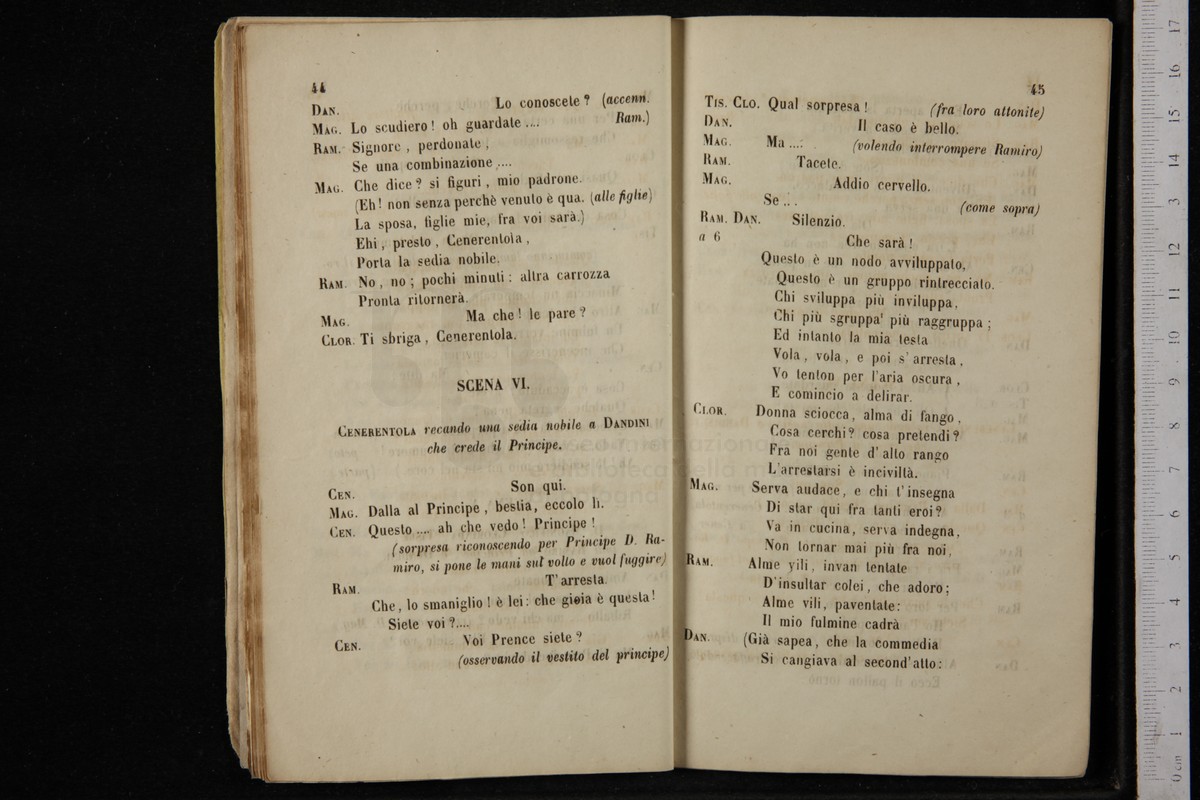 44
DAN. Lo conoscete? (accenn.
MAG. Lo scudiero! oh guardate .... Ram.)
RAM. Signore, perdonate,
Se una combinazione ....
MAG. Che dice? si figuri, mio padrone.
(Eh! non senza perchè venuto è qua. (alle figlie)
La sposa, figlie mie, fra voi sarà.)
Ehi, presto, Cenerentola,
Porta la sedia nobile.
RAM. No, no; pochi minuti: altra carrozza
Pronta ritornerà.
MAG. Ma che! le pare?
CLOR. Ti sbriga, Cenerentola.
SCENA VI.
CENERENTOLA recando una sedia nobile a DANDINI
che crede il Principe.
CEN. Son qui.
MAG. Dalla al Principe, bestia, eccolo lì.
CEN. Questo .... ah che vedo! Principe!
(sorpresa riconoscendo per Principe D. Ra-
miro, si pone le mani sul volto e vuol fuggire)
RAM. T'arresta.
Che, lo smaniglio! è lei: che gioia è questa!
Siete voi?....
CEN. Voi Prence siete?
(osservando il vestito del principe)
45
TIS. CLO. Qual sorpresa! (fra loro attonite)
DAN. Il caso è bello.
MAG. Ma .... (volendo interrompere Ramiro)
RAM. Tacete.
MAG. Addio cervello.
Se ... (come sopra)
RAM. DAN. Silenzio.
a 6 Che sarà!
Questo è un nodo avviluppato,
Questo è un gruppo rintrecciato.
Chi sviluppa più inviluppa,
Chi più sgruppa' più raggruppa;
Ed intanto la mia testa
Vola, vola, e poi s'arresta,
Vo tenton per l'aria oscura,
E comincio a delirar.
CLOR. Donna sciocca, alma di fango,
Cosa cerchi? cosa pretendi?
Fra noi gente d'alto rango
L'arrestarsi è inciviltà.
MAG. Serva audace, e chi t'insegna
Di star qui fra tanti eroi?
Va in cucina, serva indegna,
Non tornar mai più fra noi,
RAM. Alme vili, invan tentate
D'insultar colei, che adoro;
Alme vili, paventate:
Il mio fulmine cadrà
DAN. (Già sapea, che la commedia
Si cangiava al second'atto: